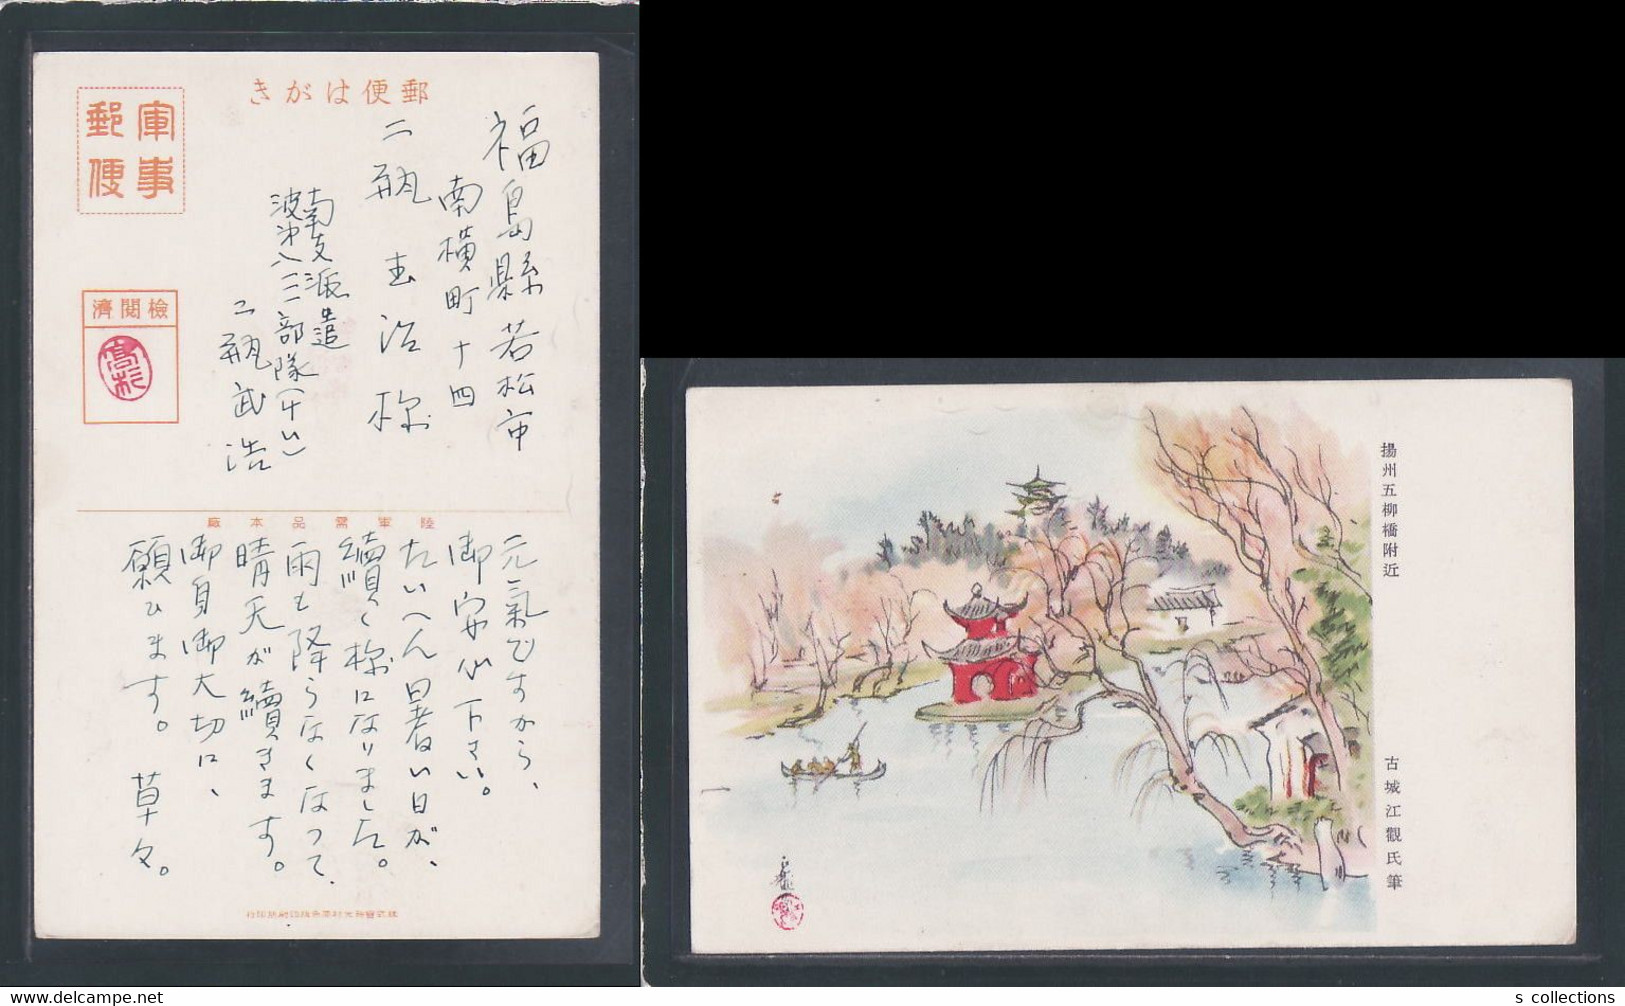 郵便はがき
軍事
郵便
檢閲濟
高杉
福島縣若松市
南横町十四
二瓶圭治様
南支派遣
波第八一一一部隊(ヰい)
二瓶武浩
陸軍需品本廠
元氣ですから、
御安心下さい。
たいへん暑い日が、
續く様になりました。
雨も降らなくなつて、
晴天が續きます。
御身御大切に、
願ひます。 草々。
揚州五柳橋附近
古城江觀氏筆
s collections